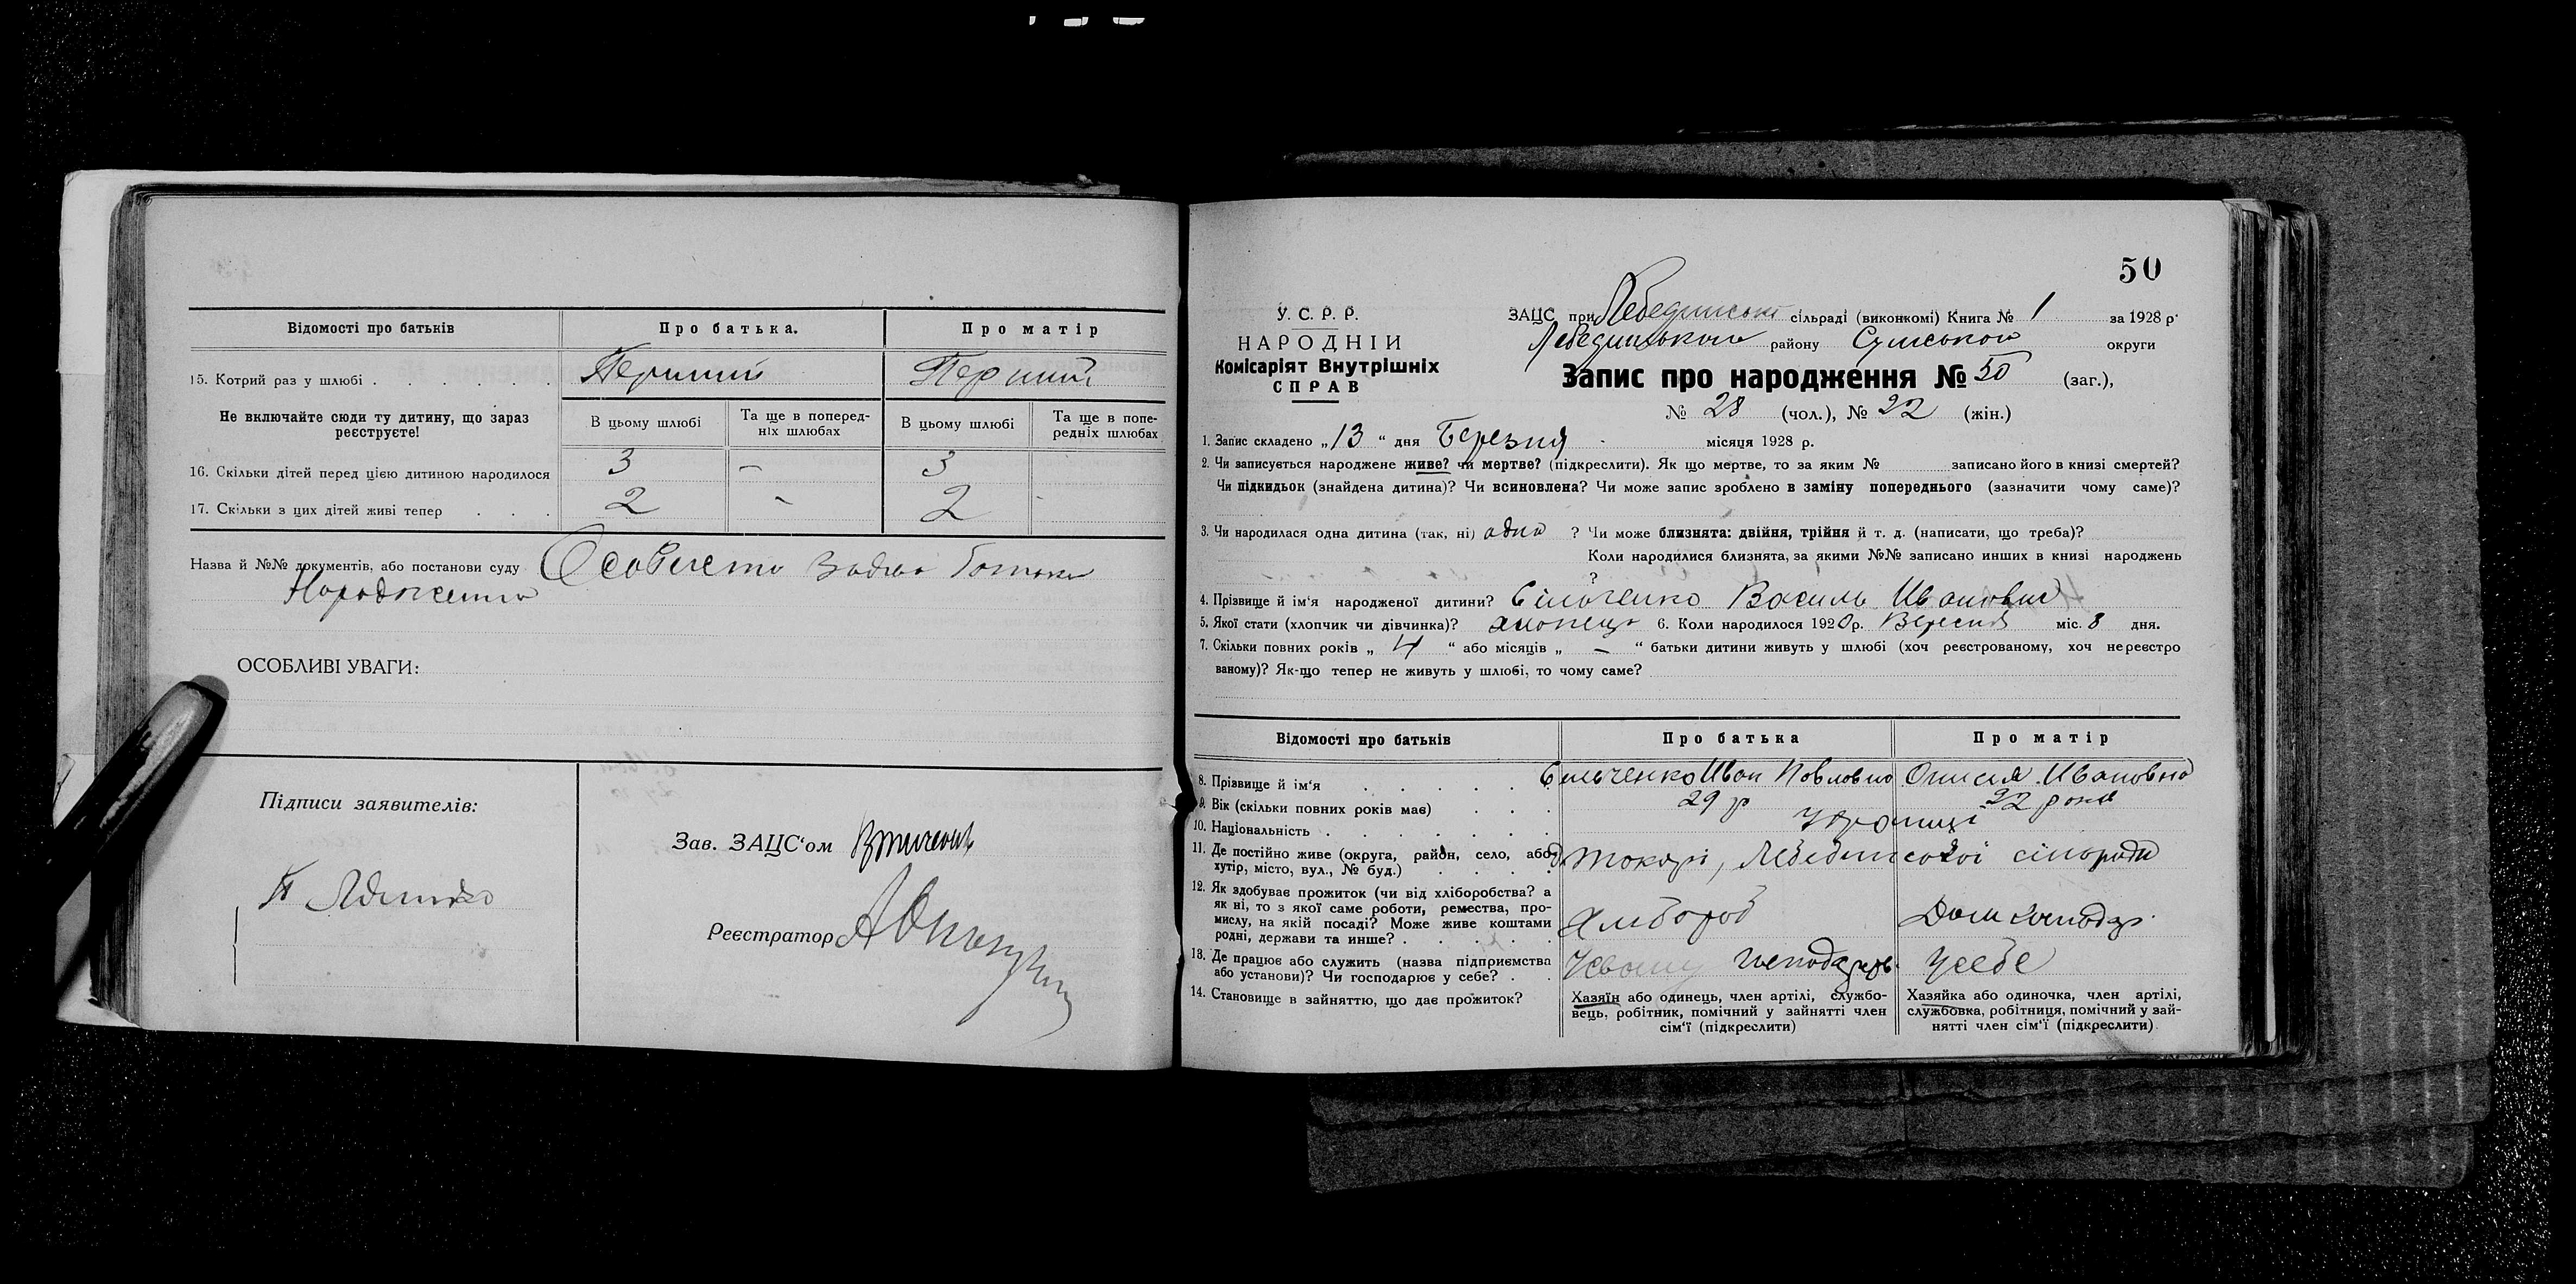 Відомості про батьків Про батька. Про матір
15. Котрий раз у шлюбі . . . . . . . Перший Перший
Не включайте сюди ту дитину, що зараз реєструєте!
В цьому шлюбі Та ще в поперед-ніх шлюбах В цьому шлюбі Та ще в попе-редніх шлюбах
16. Скільки дітей перед цією дитиною народилося 3 – 3
17. Скільки з цих дітей живі тепер . . . 2 - 2 -
Назва й №№ документів, або постанови суду
ОСОБЛИВІ УВАГИ:
Підписи заявителів:
Зав. ЗАЦС'ом
Реєстратор
50
У. С. Р. Р.
НАРОДНІЙ
Комісаріят Внутрішніх
СПРАВ
ЗАЦС при Лебединські сільраді (виконкомі) Книга № 1 за 1928 р.
Лебединського району Сумської округи
Запис про народження № 50 (заг.),
№ 28 (чол.), № 22 (жін.)
1. Запис складено „13“ дня Березня місяця 1928 р.
2. Чи записується народжене живе? чи мертве? (підкреслити). Як що мертве, то за яким № записано його в книзі смертей?
Чи підкидьок (знайдена дитина)? Чи всиновлена? Чи може запис зроблено в заміну попереднього (зазначити чому саме)?
3. Чи народилася одна дитина (так, ні) одна ? Чи може близнята: двійня, трійня й т. д. (написати, що треба)?
Коли народилися близнята, за якими №№ записано инших в книзі народжень
?
4. Прізвище й ім'я народженої дитини? Сільченко Василь Иванович
5. Якої стати (хлопчик чи дівчинка)? хлопець 6. Коли народилося 1920р. Вересня міс. 8 дня.
7. Скільки повних років „ 4 “ або місяців „ – “ батьки дитини живуть у шлюбі (хоч реєстрованому, хоч нереєстро
ваному)? Як-що тепер не живуть у шлюбі, то чому саме?
Відомості про батьків Про батька Про матір
8. Прізвище й ім'я . . . . . Сильченко Иван Павлович Ивановна
9. Вік (скільки повних років має) . . . 29 р 22 роки
10. Національність . . . . . . . Українці
11. Де постійно живе (округа, район, село, або
хутір, місто, вул., № буд.) . . . . Токарі, Лебединської сільради
12. Як здобуває прожиток (чи від хліборобства? а
як ні, то з якої саме роботи, ремества, про-
мислу, на якій посаді? Може живе коштами
родні, держави та инше? . . . . . Хлибороб Дом господар
13. Де працює або служить (назва підприємства
або установи)? Чи господарює у себе? . . У своему господарств. у себе
14. Становище в зайняттю, що дає прожиток?
Хазяїн або одинець, член артілі, службо-
вець, робітник, помічний у зайнятті член
сім'ї (підкреслити)
Хазяйка або одиночка, член артілі,
службовка, робітниця, помічний у зай-
нятті член сім'ї (підкреслити)